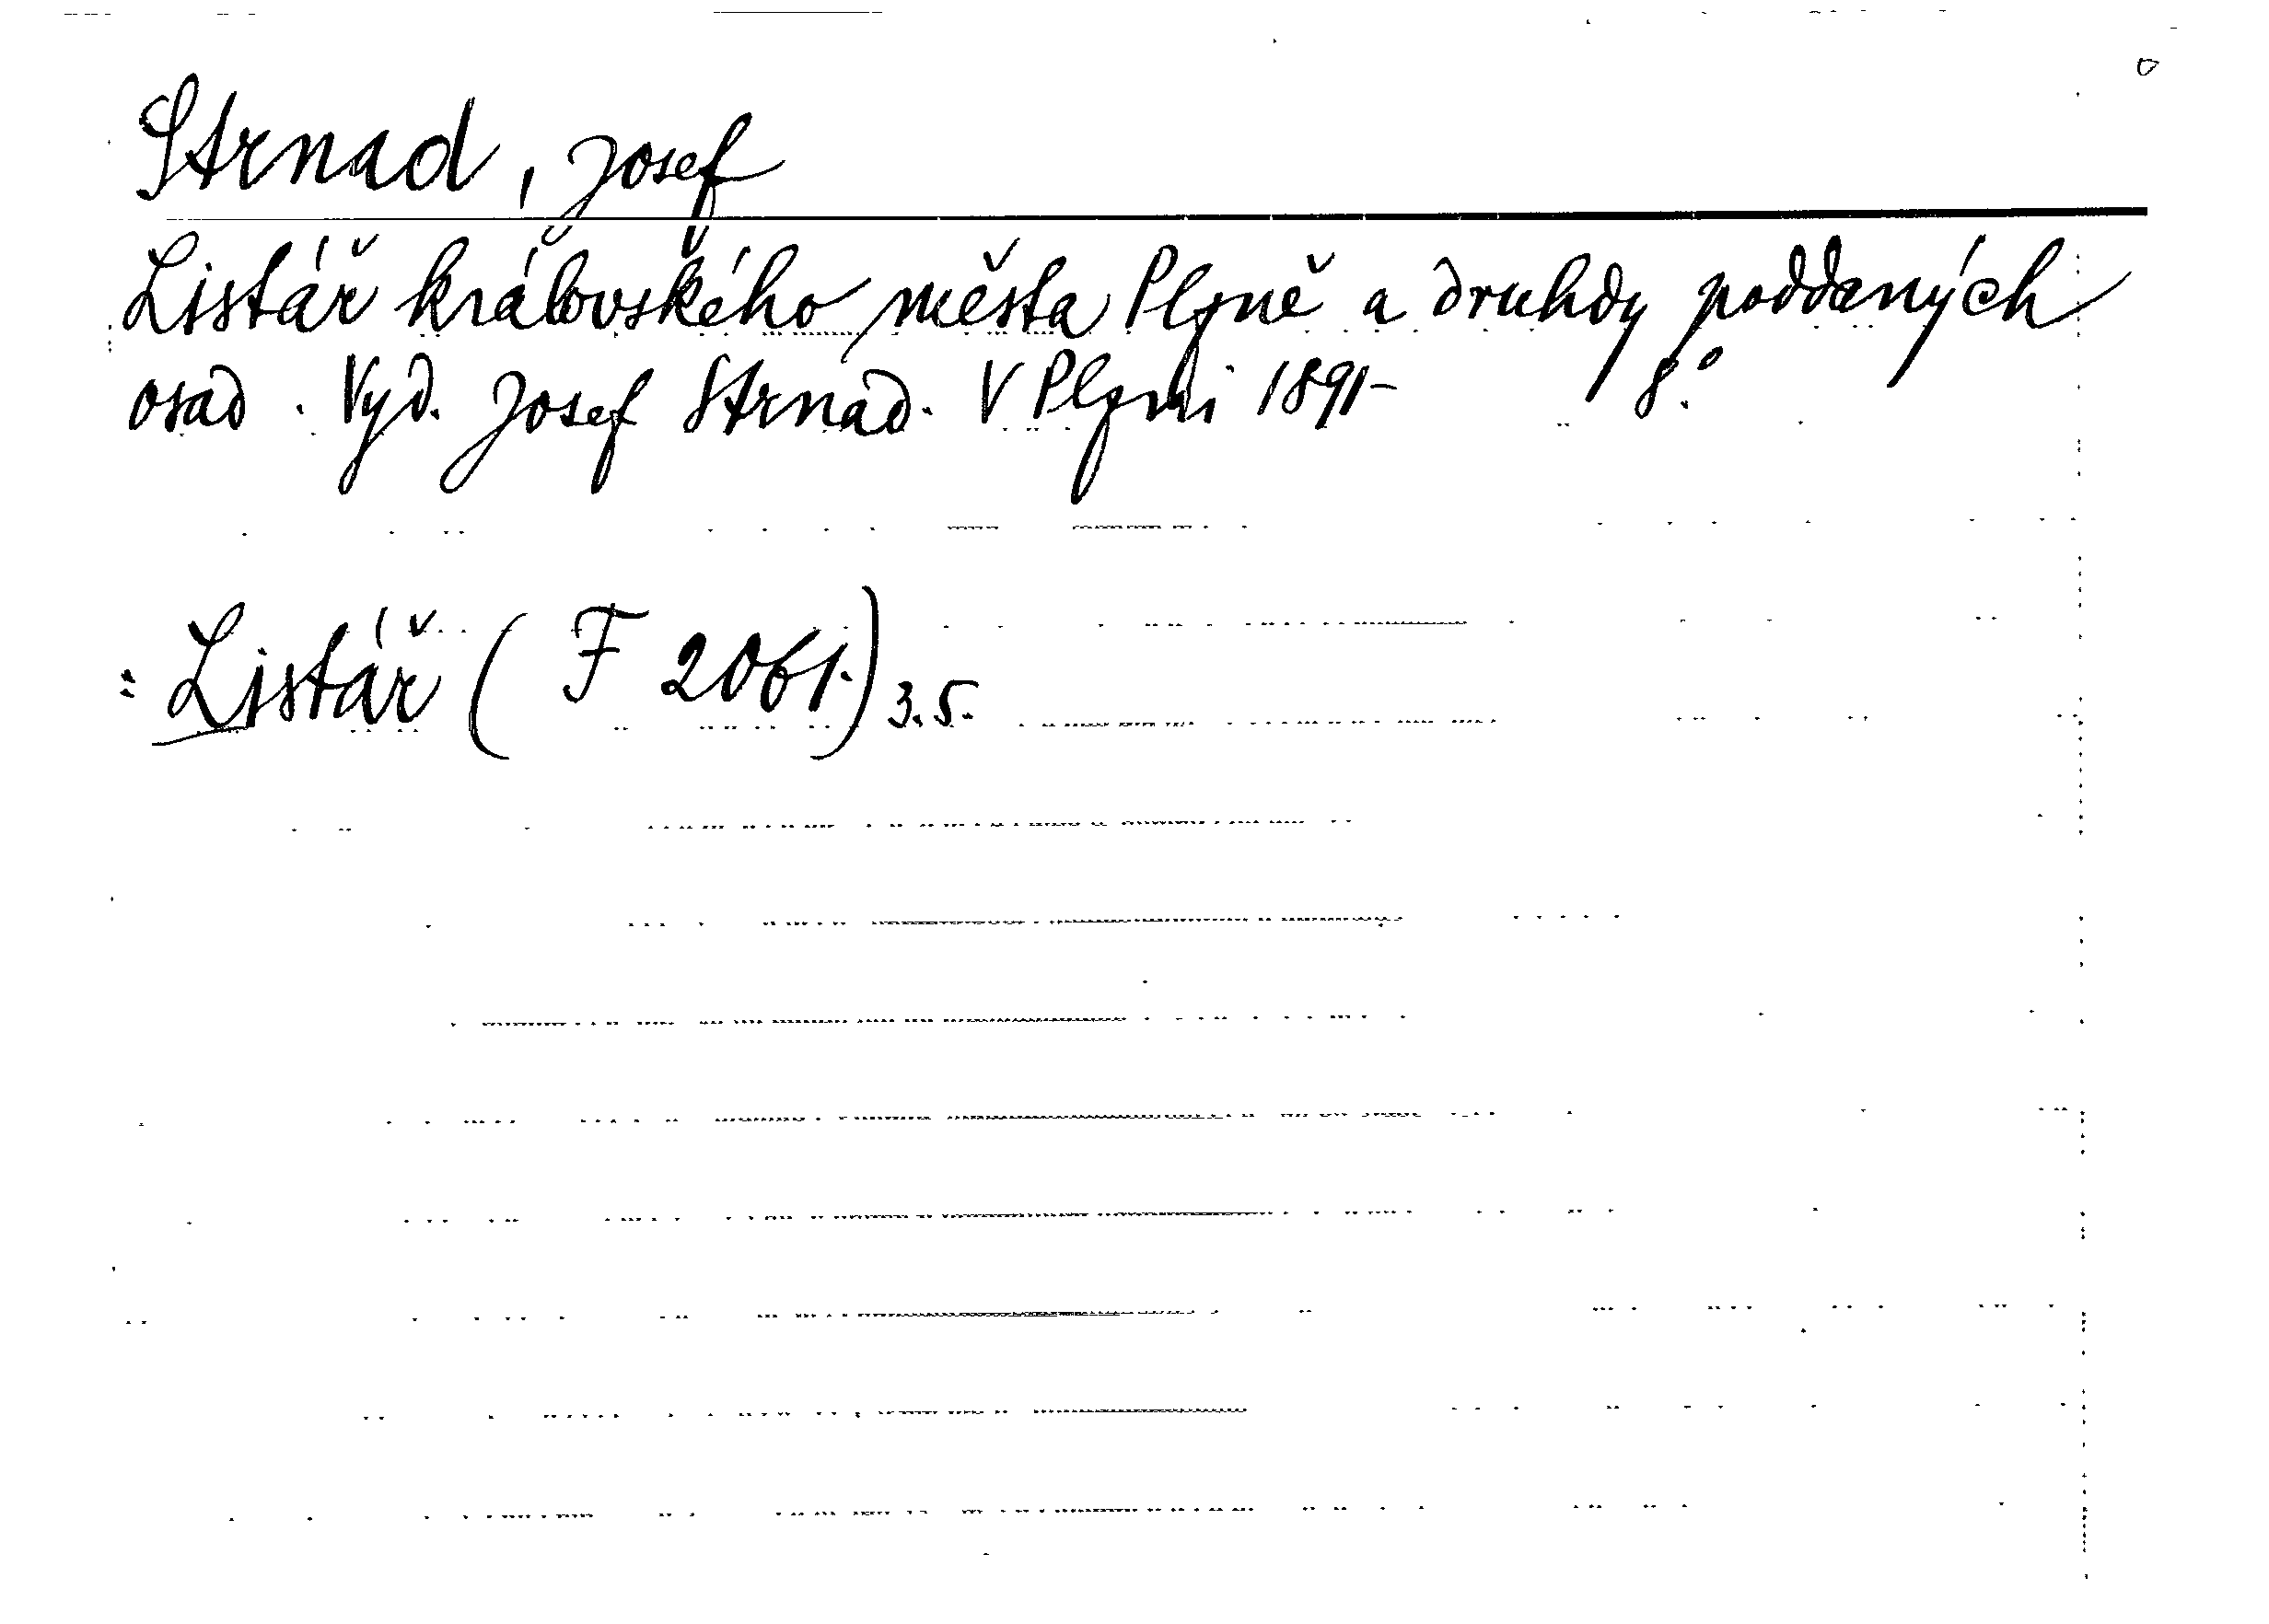 Strnad, Josef
Listář královského města Plzně a druhdy poddaných
osad. Vyd. Josef Strnad. V Plzni 1891- 8.°
: Listář (F 2061.) 3.5.